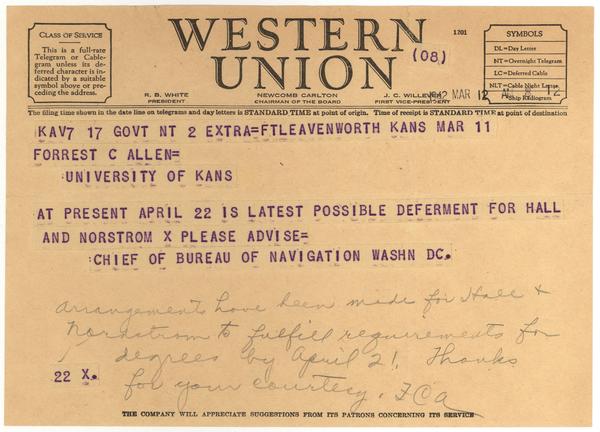 CLASS OF SERVICE
This is a full-rate
Telegram or Cable-
gram unless its de-
ferred character is in-
dicated by a suitable
symbol above or pre-
ceding the address.
WESTERN
UNION
1201
(08)
SYMBOLS
DL=Day Letter
NT=Overnight Telegram
LC=Deferred Cable
NLT=Cable Night Letter
Ship Radiogram
R. B. WHITE
PRESIDENT
NEWCOMB CARLTON
CHAIRMAN OF THE BOARD
J. C. WILLEVER
FIRST VICE-PRESIDENT
MAR 12
The filing time shown in the date line on telegrams and day letters is STANDARD TIME at point of origin. Time of receipt is STANDARD TIME at point of destination
KAV7 17 GOVT NT 2 EXTRA=FTLEAVENWORTH KANS MAR 11
FORREST C ALLEN=
:UNIVERSITY OF KANS
AT PRESENT APRIL 22 IS LATEST POSSIBLE DEFERMENT FOR HALL
AND NORSTROM X PLEASE ADVISE=
:CHIEF OF BUREAU OF NAVIGATION WASHN DC.
arrangements have been made for Hall &
Nordstrom to fulfill requirements for
degrees by April 21. Thanks
for your courtesy. FCA
22 X.
THE COMPANY WILL APPRECIATE SUGGESTIONS FROM ITS PATRONS CONCERNING ITS SERVICE